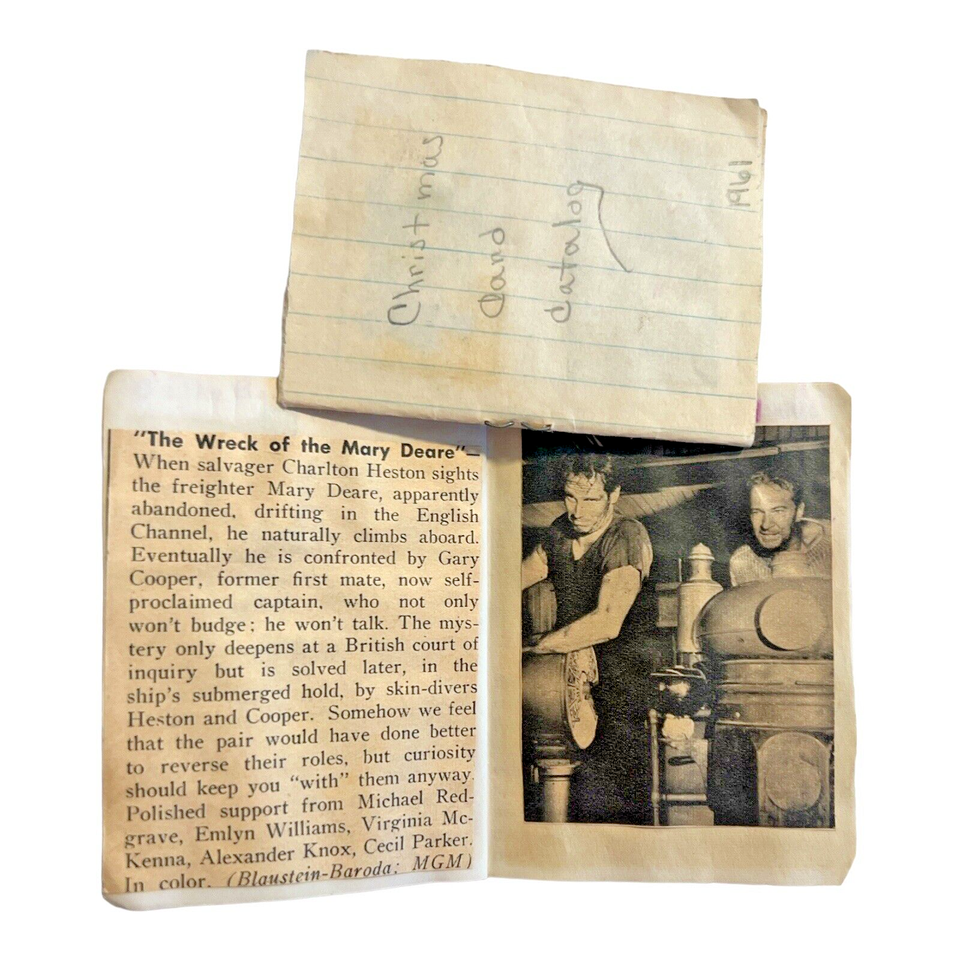 Christmas
Card
Catalog
1961
"The Wreck of the Mary Deare"—
When salvager Charlton Heston sights
the freighter Mary Deare, apparently
abandoned, drifting in the English
Channel, he naturally climbs aboard.
Eventually he is confronted by Gary
Cooper, former first mate, now self-
proclaimed captain, who not only
won't budge; he won't talk. The mys-
tery only deepens at a British court of
inquiry but is solved later, in the
ship's submerged hold, by skin-divers
Heston and Cooper. Somehow we feel
that the pair would have done better
to reverse their roles, but curiosity
should keep you "with" them anyway.
Polished support from Michael Red-
grave, Emlyn Williams, Virginia Mc-
Kenna, Alexander Knox, Cecil Parker.
In color. (Blaustein-Baroda: MGM)